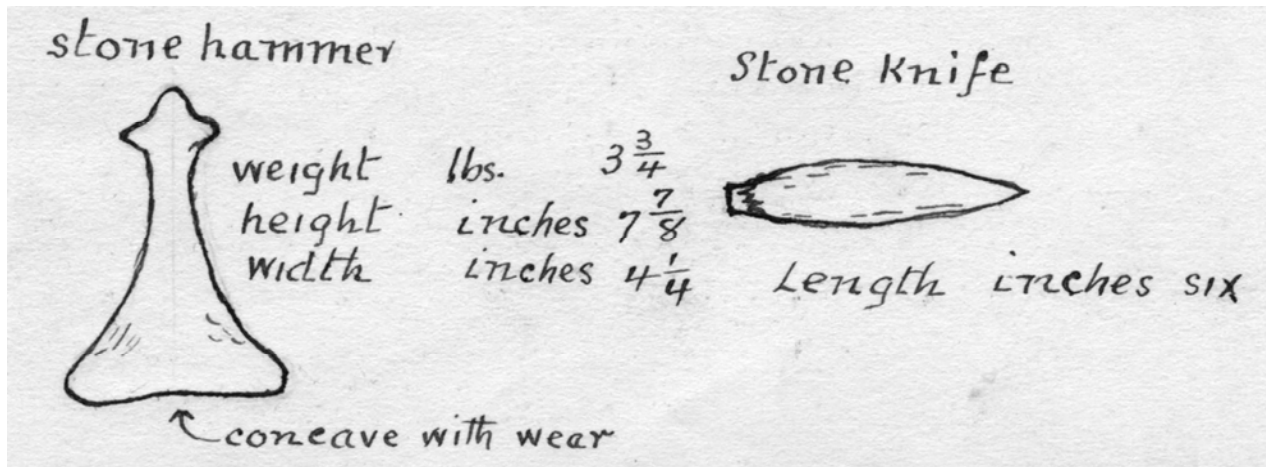 stone hammer
weight lbs. 3 3/4
height inches 7 7/8
width inches 4 1/4
concave with wear
Stone Knife
Length inches six